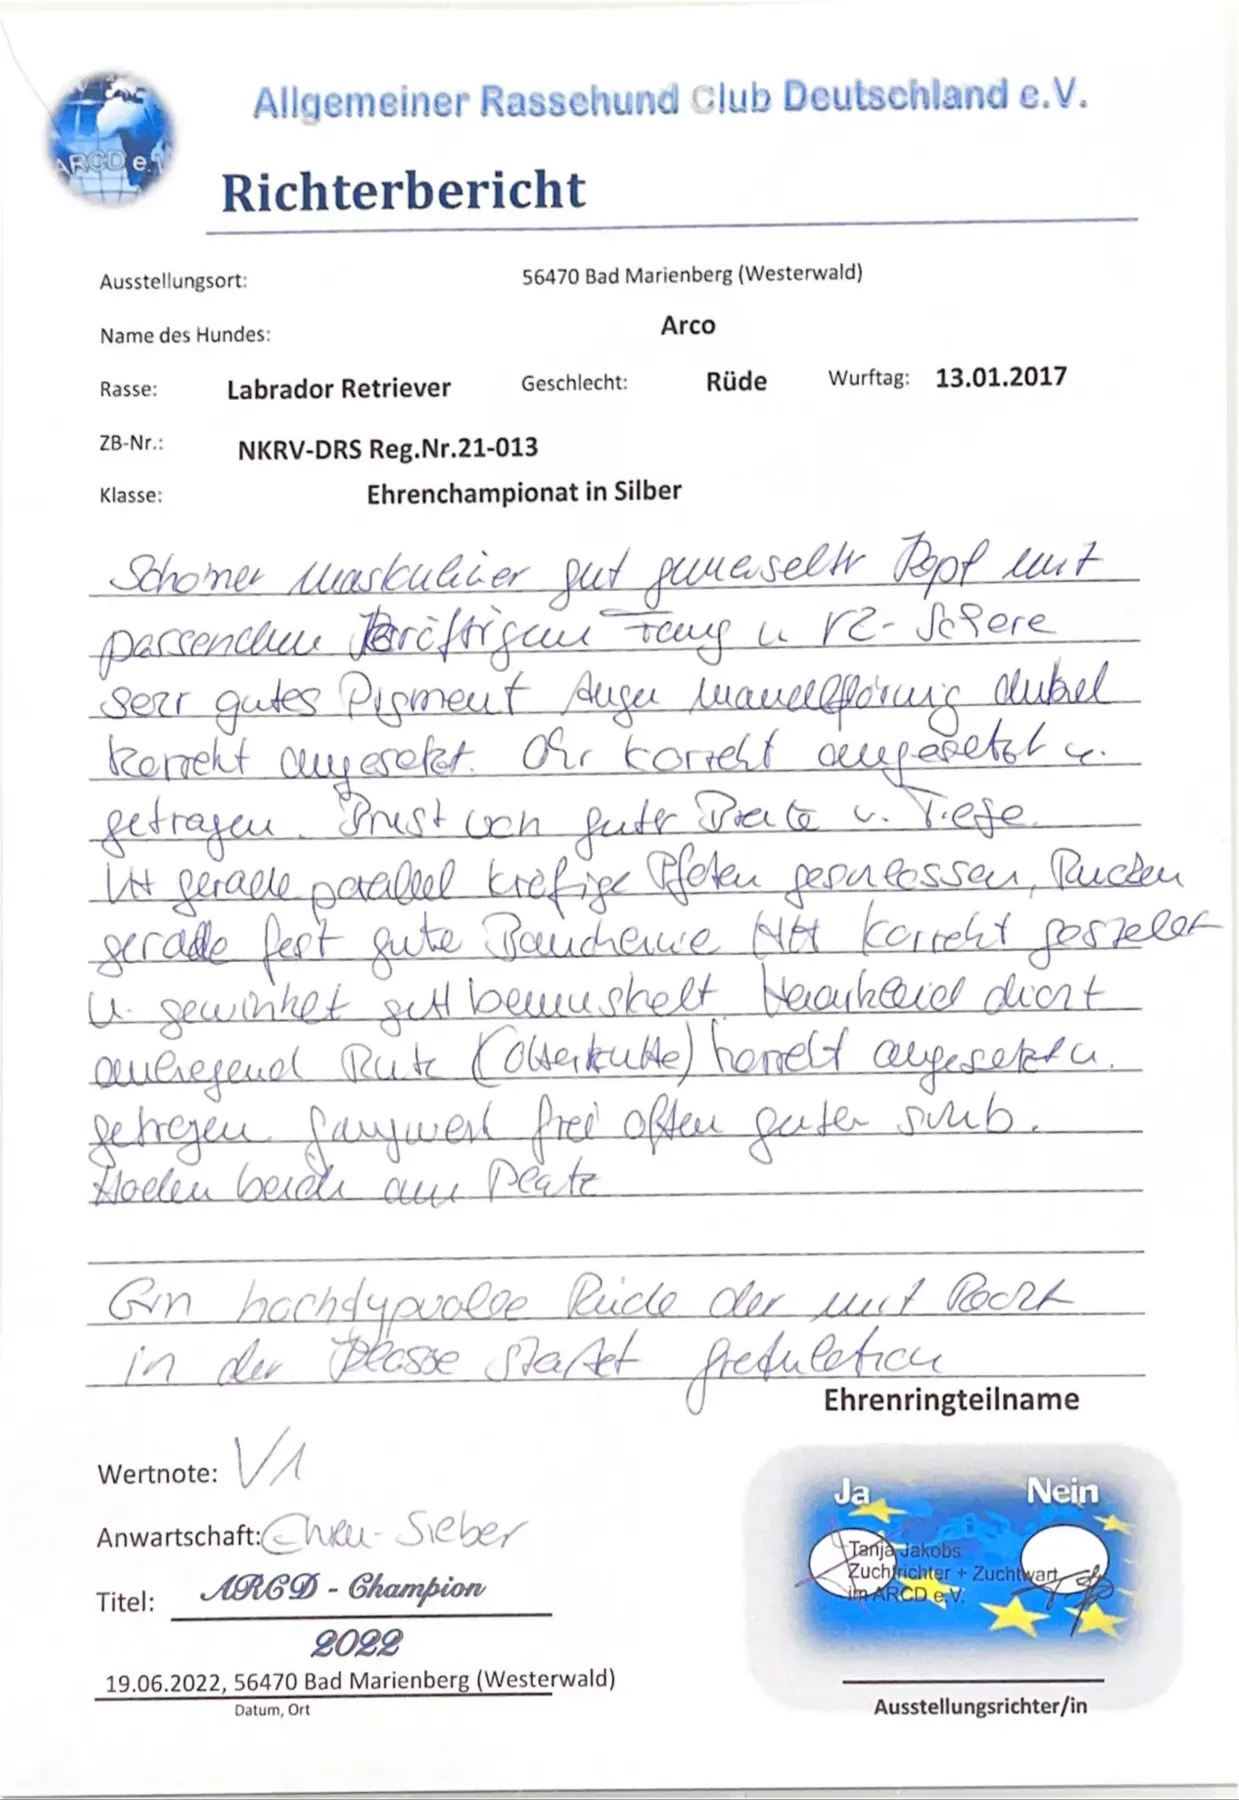 ARCD e.V
Allgemeiner Rassehund Club Deutschland e.V.
Richterbericht
Ausstellungsort: 56470 Bad Marienberg (Westerwald)
Name des Hundes: Arco
Rasse: Labrador Retriever Geschlecht: Rüde Wurftag: 13.01.2017
ZB-Nr.: NKRV-DRS Reg.Nr.21-013
Klasse: Ehrenchampionat in Silber
Schöner maskuliner gut gemeiselter Kopf mit
passendem kräftigem Fang u VZ- Schere
Sehr gutes Pigment Augen mandelförmig dunkel
korrekt angesetzt. Ohr korrekt angesetzt u.
getragen. Brust von guter Breite u. Tiefe.
VH gerade parallel kräfige Pfoten geschlossen, Rücken
gerade fest gute Bauchlinie HH korrekt gestellt
u. gewinkelt gut bemuskelt Haarkleid dicht
anliegend Rute (Otterrutte) korrekt angesetzt u.
getragen Gangwerk frei offen guter Schub.
Hoden beide am Platz
Ein hochtypvolle Rüde der mit Recht
in der Klasse startet gratulation
Ehrenringteilname
Ja Nein
Wertnote: V1
Anwartschaft: Ehren-Silber
Titel: ARCD - Champion
2022
Tanja Jakobs
Zuchtrichter + Zuchtwart
im ARCD e.V.
19.06.2022, 56470 Bad Marienberg (Westerwald)
Datum, Ort
Ausstellungsrichter/in